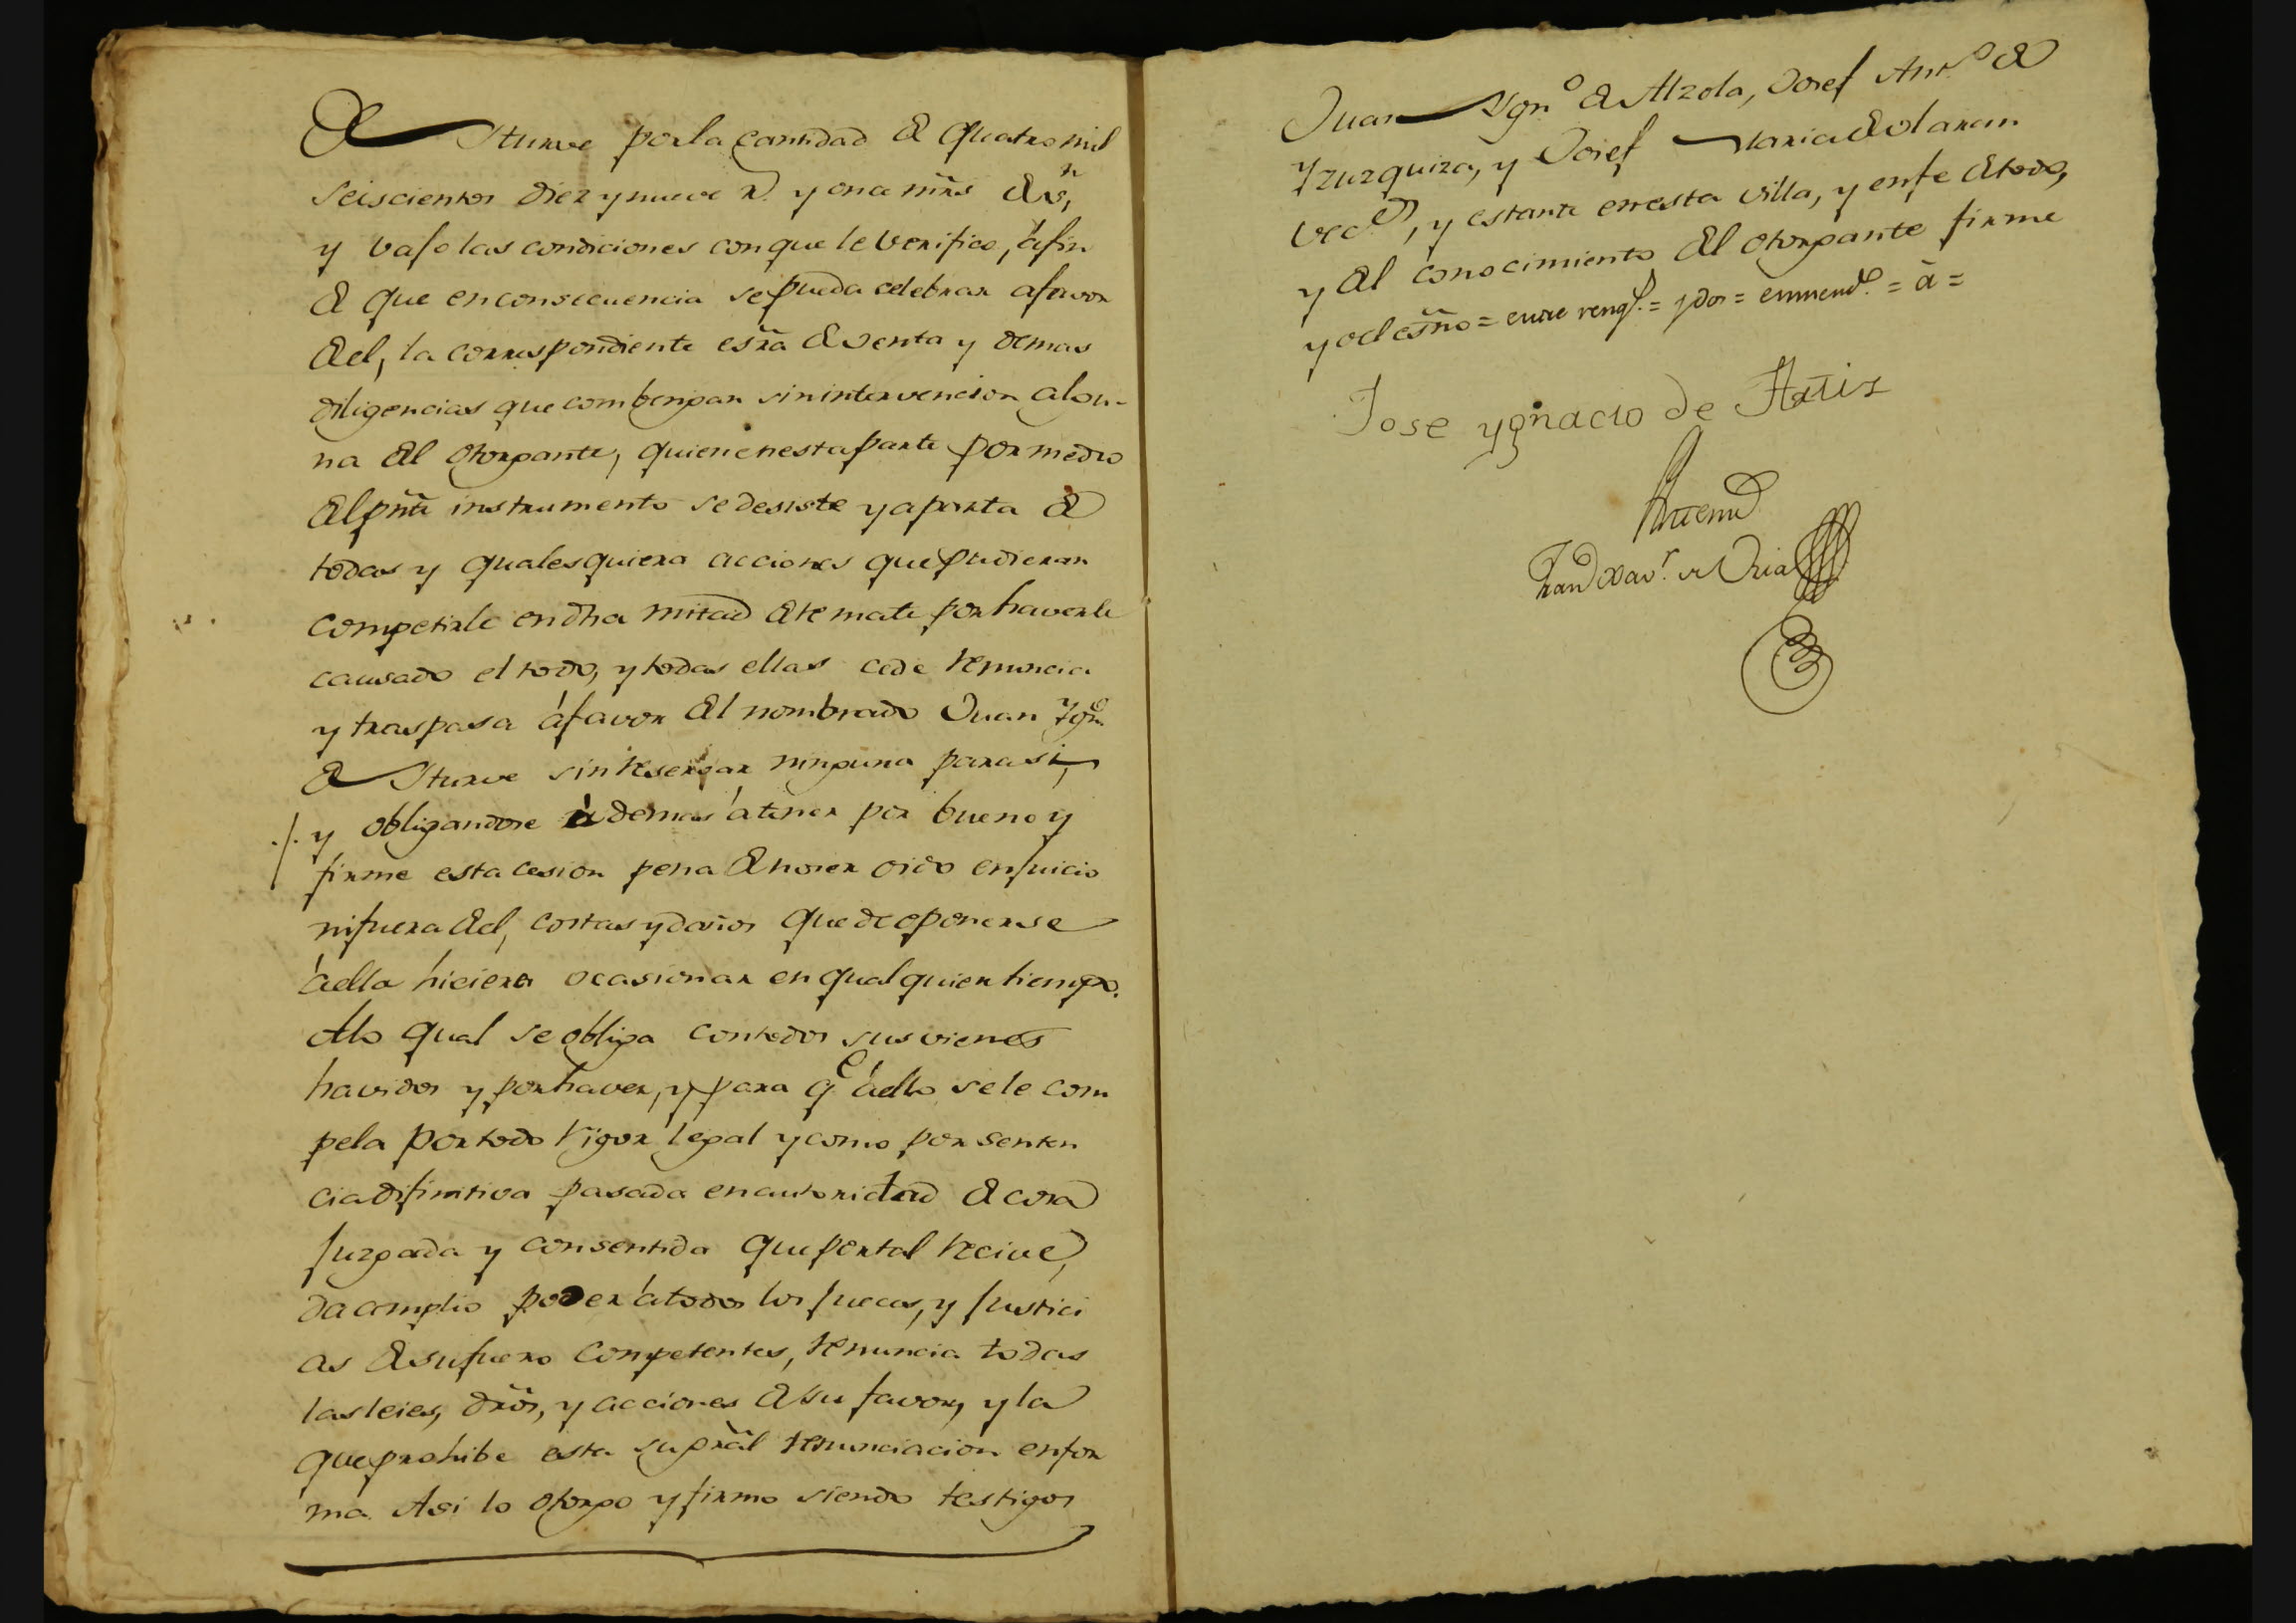 de Yturve por la cantidad de quatro mil
seiscientos diez y nueve r.^s y once mr̃s de v^n,
y bajo las condiciones con que le verifico, á fin
de que en consecuencia se pueda celebrar a favor
de el, la correspondiente esr̃a de venta y demas
diligencias que combengan sin intervencion algu-
na del otorgante, quien en esta parte por medio
del pñte instrumento se desiste y aparta de
todas y qualesquiera acciones que pudieran
competirle en dha mitad de remate por haverle
causado el todo, y todas ellas cede renuncia
y traspasa á favor del nombrado Juan Ygn.^o
de Yturve sin reservar ninguna para si,
./. y obligandose á demas á tener por bueno y
firme esta cesion pena de no ser oido en juicio
ni fuera de el, costas y daños que de oponerse
á ella hiciera ocasionar en qualquier tiempo.
A lo qual se obliga con todos sus vienes
havidos y por haver, y para q^e á ello se le com
pela por todo rigor legal y como por senten
cia difinitiva pasada en autoridad de cosa
juzgada y consentida que por tal recive,
da amplio poder á todos los jueces, y justici
as de su fuero competentes, renuncia todas
las leies, dr̃os, y acciones de su favor, y la
que prohibe esta su gr̃al renunciacion en for
ma. Asi lo otorgo y firmo siendo testigos
Juan Ygn^o de Alzola, Josef Ant^o de
Yzuzquiza, y Josef Maria de Olaran
vec^s, y estante en esta villa, y en fe de todo,
y del conocimiento del otorgante firme
yo el esr̃no = entre reng.^s = y dos = enmend.^o = á =
Jose ygnacio de
Antemi
Fran^co Xav.^r de Uria